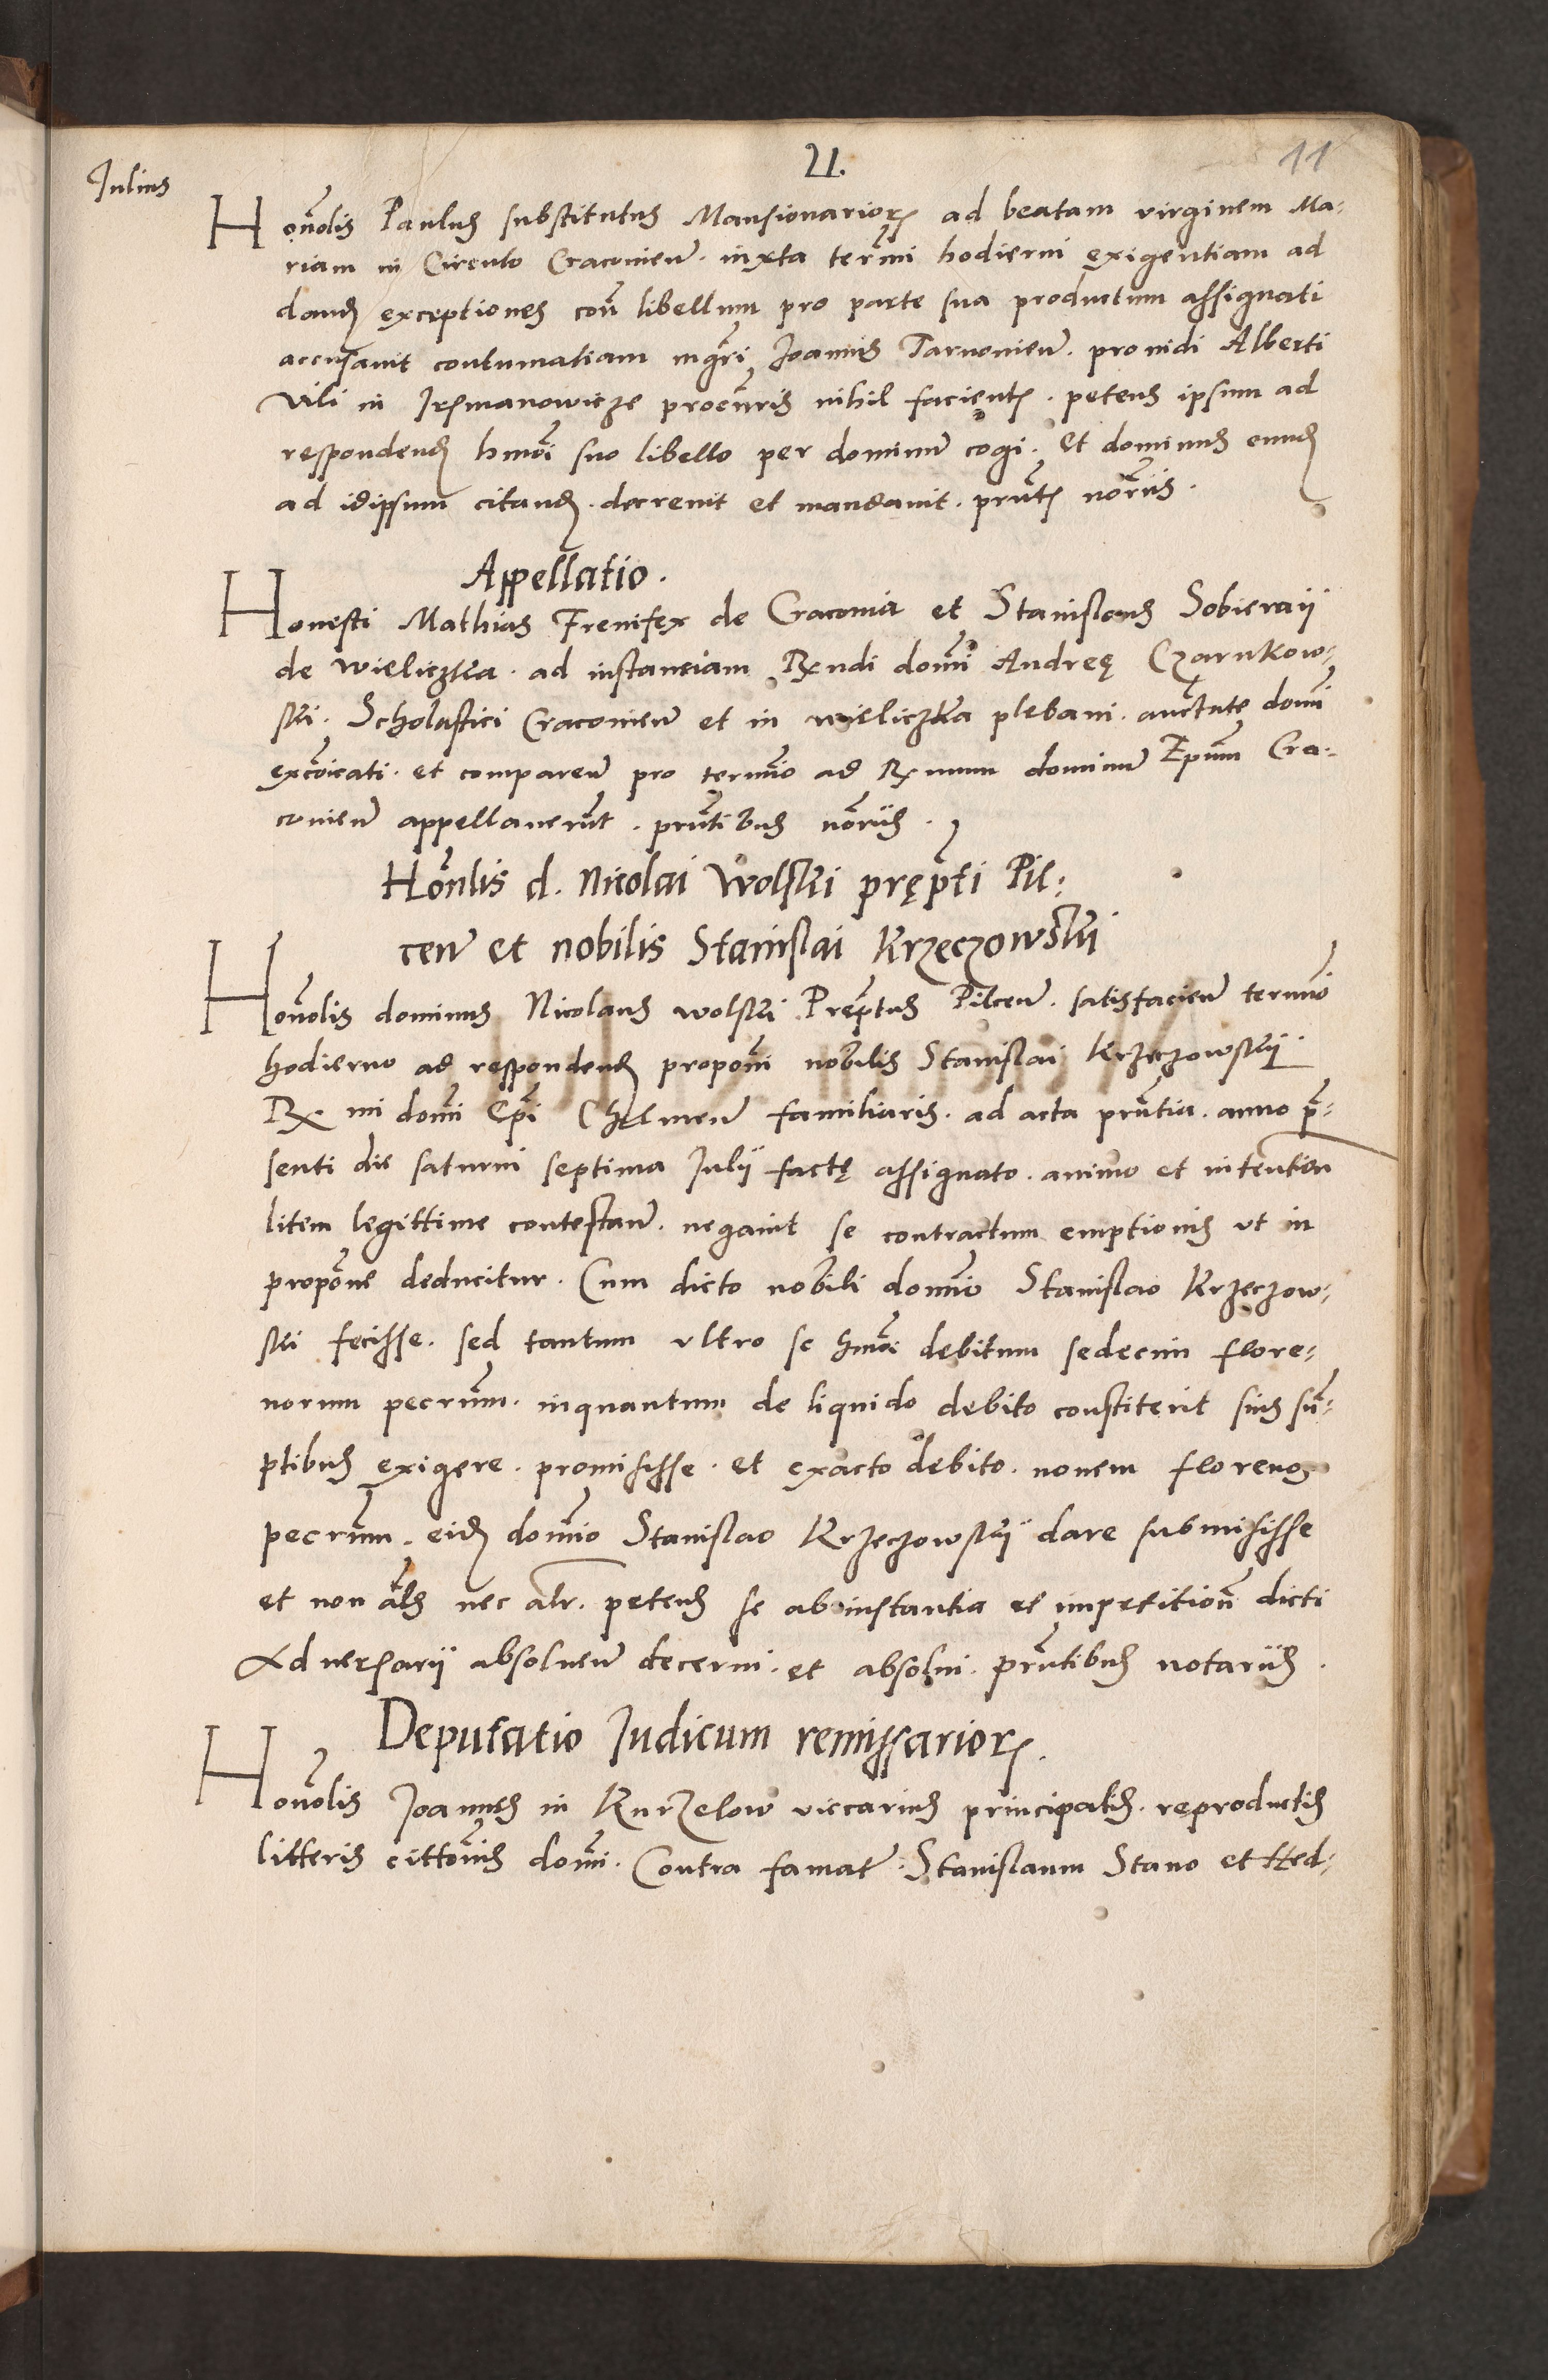 Julius
21.
11
Honolis Paulus substitutus Mansionarior ad beatam virginem Ma-
riam in Circulo Cracovien. iuxta termi hodierni exigentiam ad
dand exceptiones con libellum pro parte sua productum assignati
accusavit contumatiam mgri Joannis Tarnovien. providi Alberti
Vili in Irzmanowicze procuris nihil facient. petens ipsum ad
respondend hmoi suo libello per dominum cogi. Et dominus eund
ad idipsum citand. decrevit et mandavit. prnt noriis.
Appellatio.
Honesti Mathias Frenifex de Cracovia et Stanislaus Sobieraij
de wieliczka. ad instanciam Rndi domi Andreę Czarnkow-
ski. Scholastici Cracovien et in wieliczka plebani. auctate domi
excoicati. et comparen pro termio ad Rmum dominum Epum Cra-
covien appellaverunt. prntibus noriis.
Honlis d. Nicolai Wolski prępti Pil-
cen et nobilis Stanislai Krzeczowski
Honolis dominus Nicolaus wolski Preptus Pilcen. satisfacien termio
hodierno ad respondend proponi nobilis Stanislai Krzeczowskij.
R mi domi Epi Chelmen familiaris. ad acta prntia. anno p-
senti die saturni septima Julij factę assignato. animo et intention
litem legittime contestan. negavit se contractum emptionis ut in
propone deducitur. Cum dicto nobili domio Stanislao Krzeczow-
ski fecisse. sed tantum ultro se hmoi debitum sedecim flore-
norum pecrum. inquantum de liquido debito constiterit suis sum-
ptibus exigere. promisisse. et exacto debito. novem florenos
pecrum. eid domio Stanislao Krzeczowskij dare submisisse
et non als nec alr. petens se ab instantia et impetition dicti
Adversarij absolven decerni. et absolvi. prntibus notariis.
Deputatio Judicum remissarior.
Honolis Joannes in Kurzelow viccarius principalis. reproductis
litteris cittonis domi. Contra famat. Stanislaum Stano et Hed-